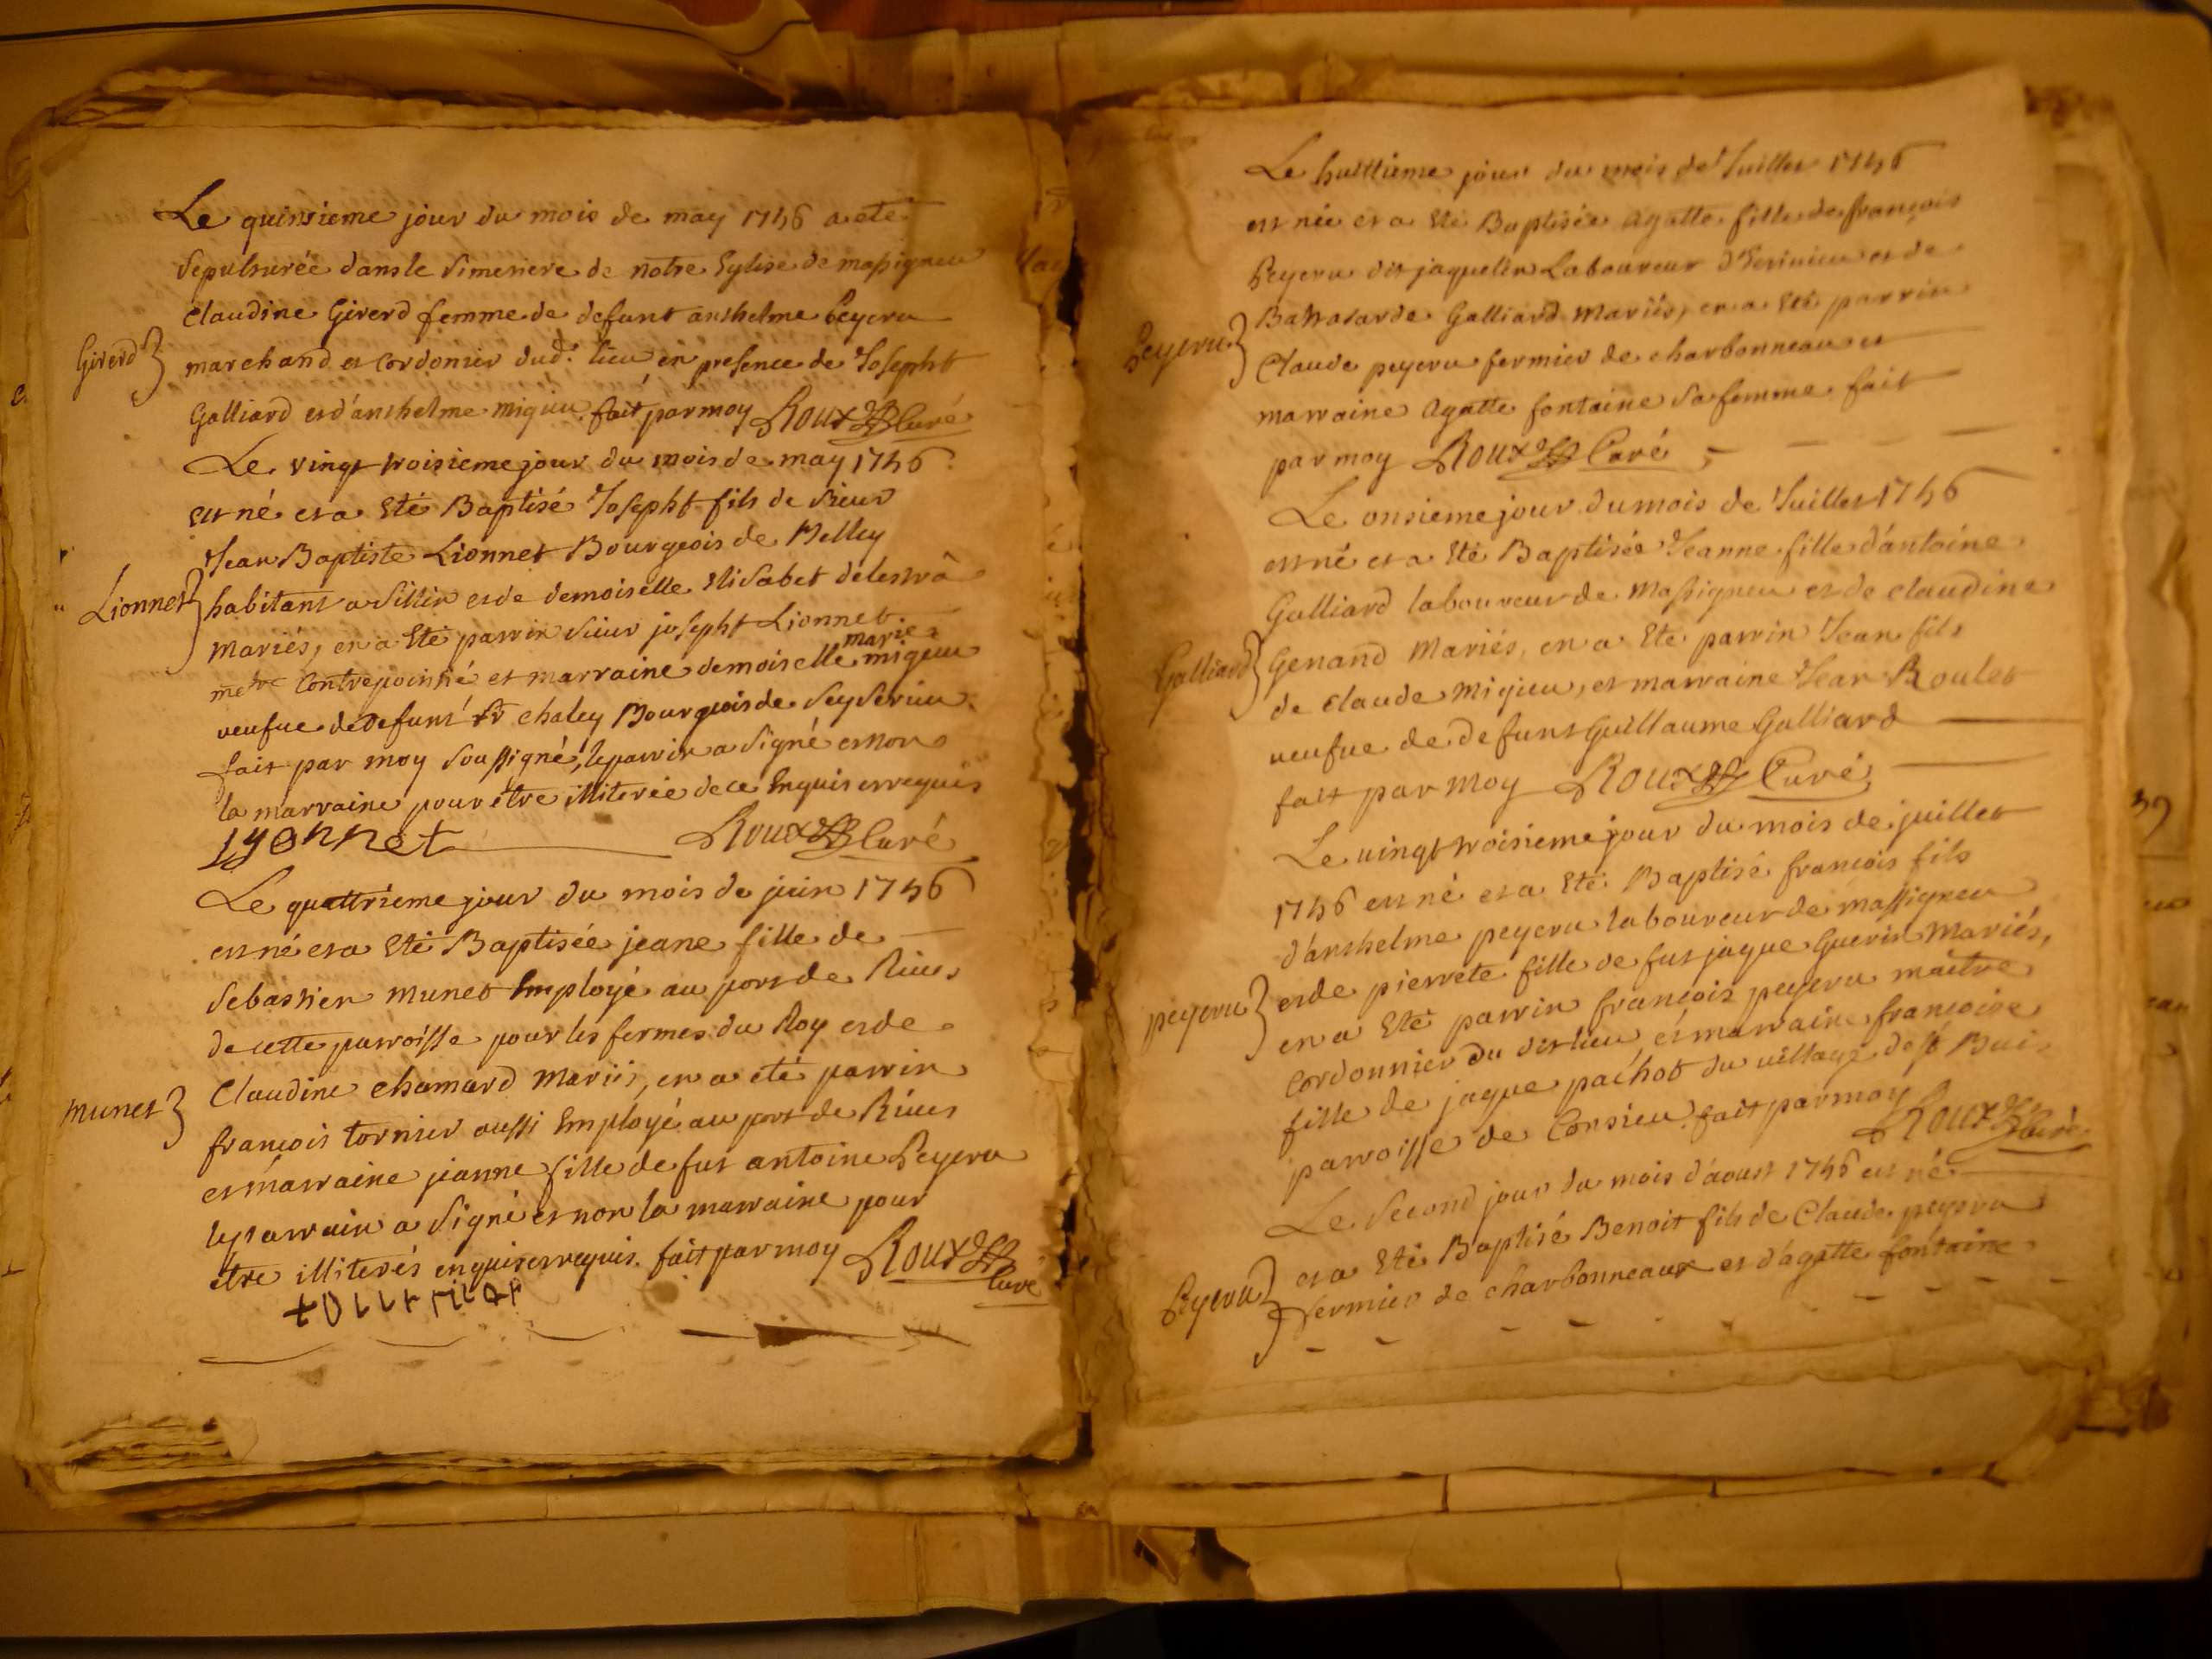 Le quinsieme jour du mois de may 1746 a eté
sepulturée dans le simetiere de notre Eglise de massigneu
Claudine Girerd femme de defunt anthelme Peyeru
Girerd
marchand et Cordonier dud. lieu en presence de Josepht
Galliard et d'anthelme migieu. fait par moy Roux Curé
Le vingt troisieme jour du mois de may 1746
est né et a Eté Baptisé Josepht fils de sieur
Jean Baptiste Lionnet Bourgeois de Belley
Lionnet
habitant a Sillin et de demoiselle Elisabet delestrâ
mariés, en a Eté parrin sieur josepht Lionnet
marie
me Contrepointié et marraine demoiselle migieu
veufue de defunt sr chaley Bourgeois de Seyserieu
fait par moy soussigné, le parrin a signé et non
la marraine pour étre illiterée de ce Enquis et requis
Lyonnet Roux Curé
Le quattrieme jour du mois de juin 1746
est né et a Eté Baptisée jeane fille de
Sebastien munet Employé au port de Rives
de cette parroisse pour les fermes du Roy et de
Claudine chamard Mariés, en a eté parrin
munet
francois tornier aussi Employé au port de Rives
et marraine jeanne fille de fut antoine Peyeru
le parrain a signé et non la marraine pour
etre illiterés enquis et requis. fait par moy Roux
Curé
Le huittieme jour du mois de Juillet 1746
est née et a Eté Baptisée agatte fille de françois
Peyeru dit jaquelin Laboureur d'Eerinieu et de
Baltasarde Galliard Mariés, en a Eté parrin
Peyeru
Claude peyeru fermier de charbonneau et
marraine Agatte fontaine sa femme fait
par moy Roux Curé
Le onsieme jour du mois de Juillet 1746
est né et a Eté Baptisée Jeanne fille d'antoine
Galliard laboureur de Massigneu et de claudine
Galliard
Genand Mariés, en a Eté parrin Jean fils
de claude Migieu, et marraine Jean Roulet
veufue de defunt Guillaume Galliard
fait par Moy Roux Curé
Le vingt troisieme jour du mois de juillet
1746 est né et a Eté Baptisé francois fils
d'anthelme peyeru laboureur de massigneu
et de pierrete fille de fut jaque Guerin Mariés,
peyeru
en a Eté parrin francois peyeru maitre
Cordonnier du dit lieu et marraine francoise
fille de jaque pachot du village de st Bois
parroisse de Consieu. fait par moy
Roux Curé
Le second jour du mois d'aoust 1746 est né
et a Eté Baptisé Benoit fils de Claude peyeru
Peyeru
fermier de charbonneaux et d'agatte fontaine